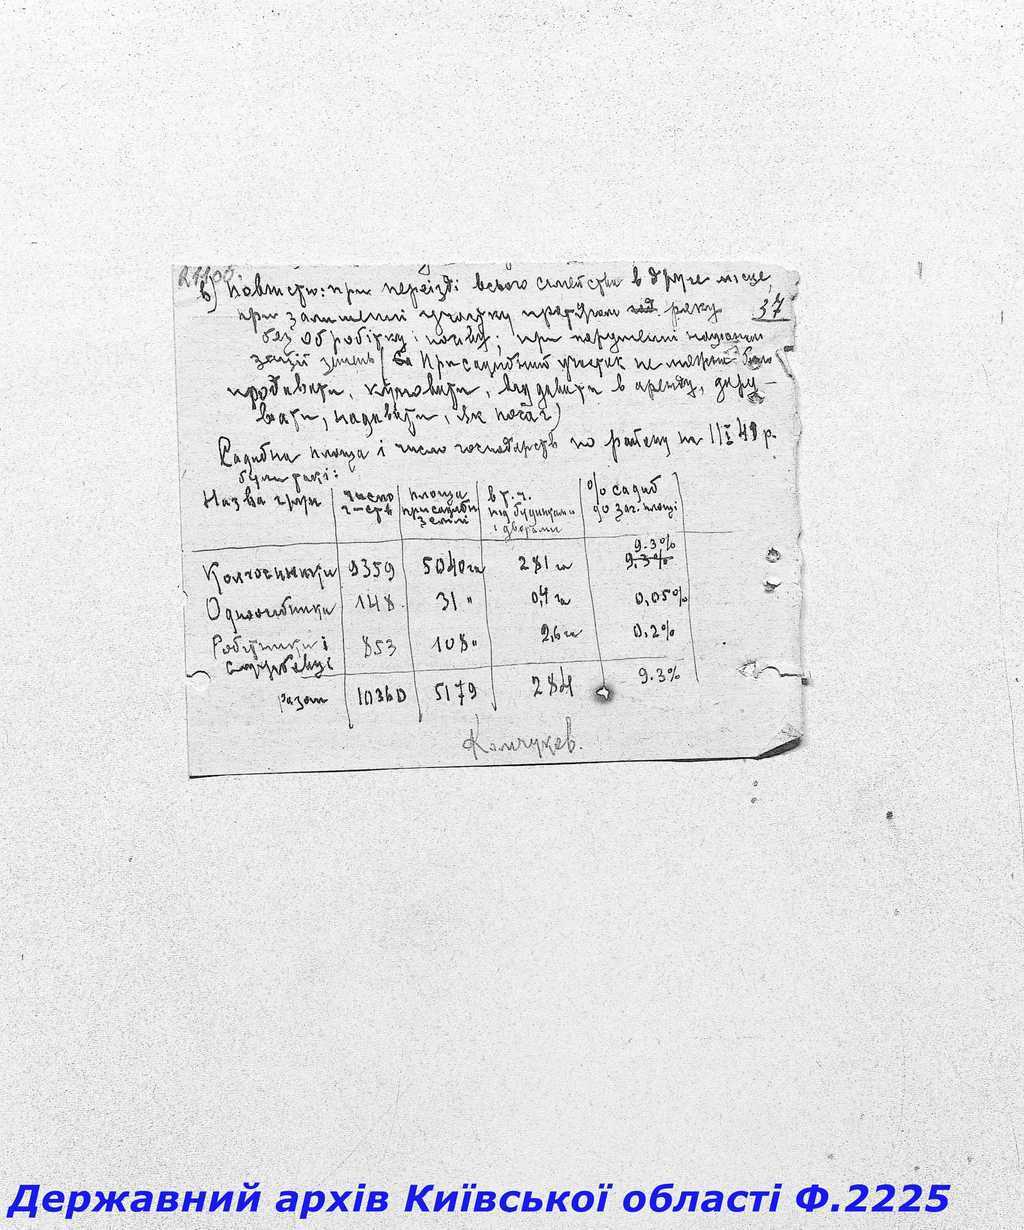 в) повністю: при переїзді всього сімейства в друге місце,
37
при залишенні участку протягом року
без обробітку і посіву; при порушенні націонал
зації земель (бо Присадибний участок не може бути
продавати, купувати, віддавати в аренду, дару-
вати, надавати, як посаг)
Садибна площа і число господарств по району на 1/I 49 р.
були такі:
Назва груп | число г-ств | площа присадибн землі | в т. ч. під будинками і дворами | % садиб до заг. площі
9.3%
Колгоспники 9359 5040 га 281 га 9,3%
Одноосібники 148 31 " 0,4 га 0,05%
Робітники і 853 108 " 2,6 га 0.2%
службовці
Разом 10360 5179 284 9.3%
Державний архів Київської області Ф.2225